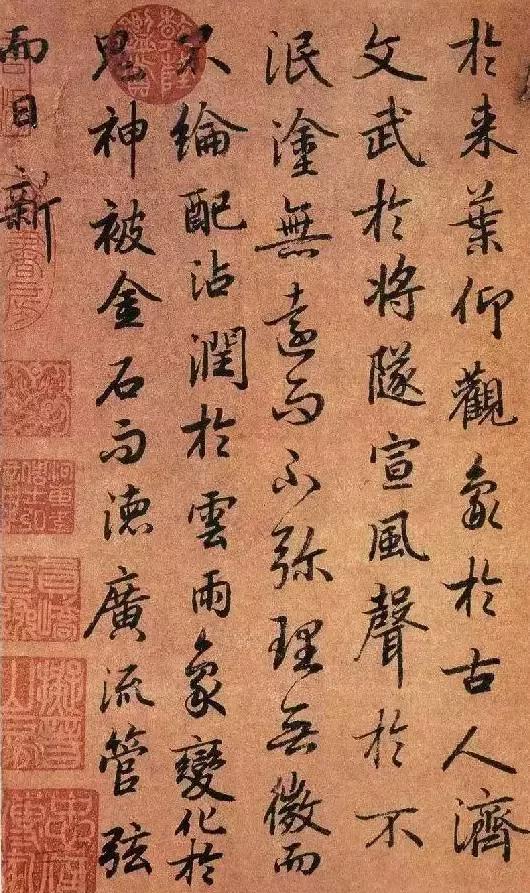 於来葉仰觀象於古人濟
文武於将隊宣風聲於不
泯塗無遠而不弥理無微而
不綸配沾潤於雲雨象變化於
鬼神被金石而徳廣流管弦
而日新